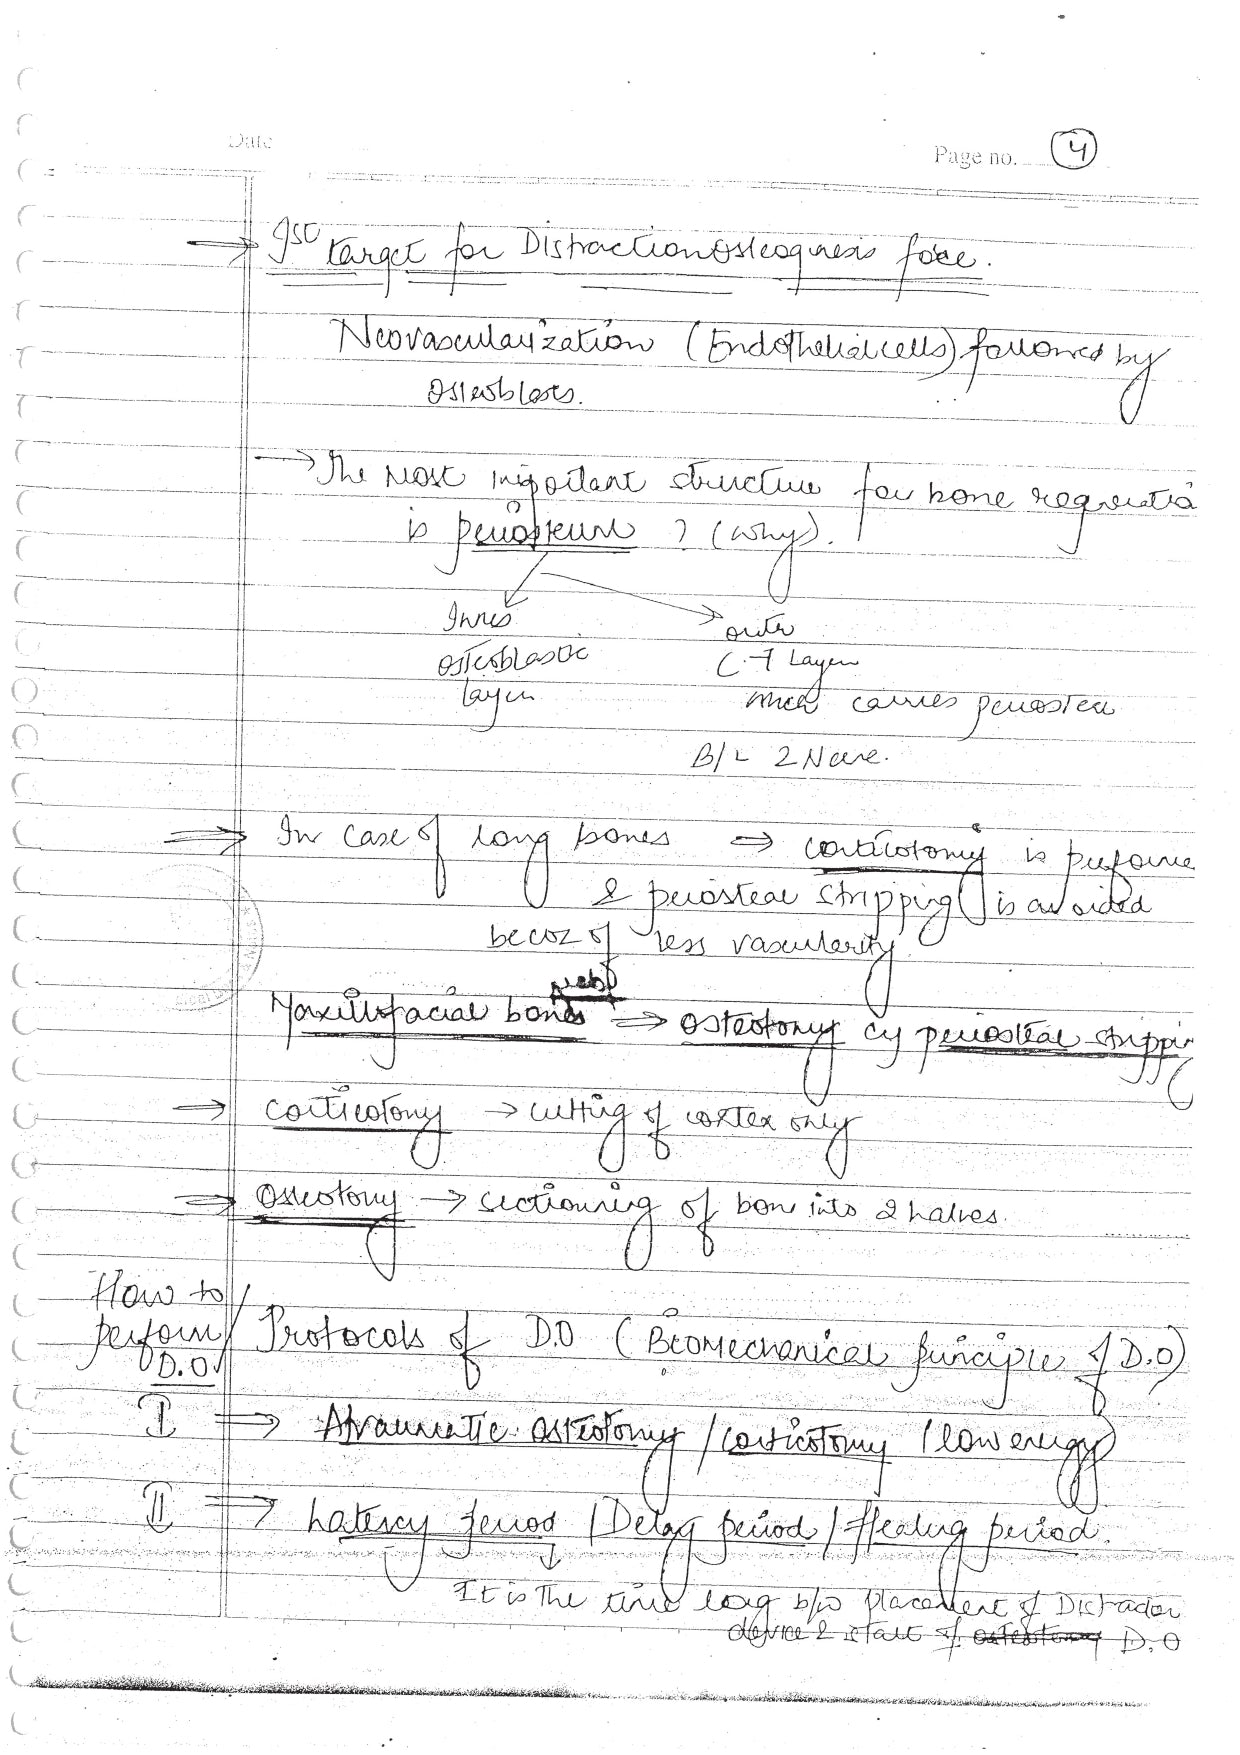 Date
Page no. 4
⇒ Ist target for Distraction Osteognesis force.
Neovascularization (Endothelial cells) followed by
Osteoblasts.
→ The Most important structure for bone regneratio
is periosteum ? (why).
Inner outer
Osteoblastic C.T Layer
layer which carries periosteal
B/L & Nerve.
⇒ In case of long bones ⇒ corticotomy is performe
& periosteal stripping is avoided
becoz of less vascularity
Maxillofacial bones ⇒ osteotomy c̄ periosteal strippin
⇒ corticotomy → cutting of cortex only
⇒ Osteotomy → sectioning of bone into 2 halves.
How to
perform
D.O
Protocols of D.O (Biomechanical principle of D.O)
I ⇒ Atraumatic osteotomy / corticotomy / low energy
II ⇒ Latency period / Delay period / Healing period.
It is the time b/w placement of Distractor
device & start of osteotomy D.O